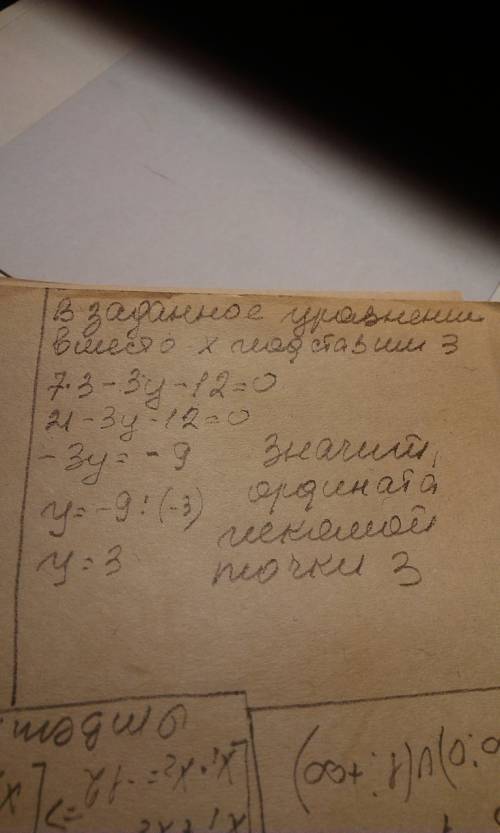 В заданное уравнении
вместо x подставим 3
7·3-3y-12=0
21-3y-12=0
-3y=-9
y=-9:(-3)
y=3
Значит,
ордината
искомой
точки 3
;0)∪(1;+∞)
x₁·x₂=-12